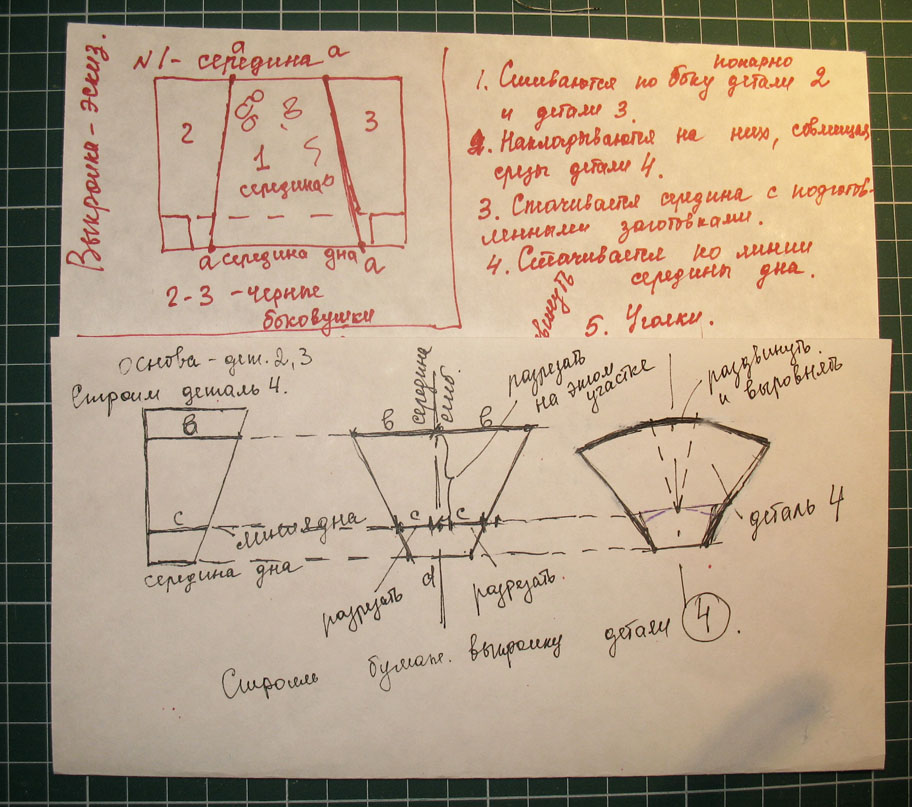 Выкройка-эскиз.
N1- середина
а а
2 3
1
середина
а середина дна а
2-3 - черные
боковушки
попарно
1. Сшиваются по боку детали 2
и детали 3.
2. Накладываются на них, совмещая
срезы детали 4.
3. Стачивается середина с подготов-
ленными заготовками.
4. Стачивается по линии
середины дна.
5. Уголки.
Основа - дет. 2,3
Строим деталь 4.
в
с
линия дна
середина дна
середина
сгиб.
в в
с с
d
разрезать
на этом
участке
разрезать
разрезать.
раздвинуть
и выровнять
деталь 4
Строим бумаж. выкройку детали 4.